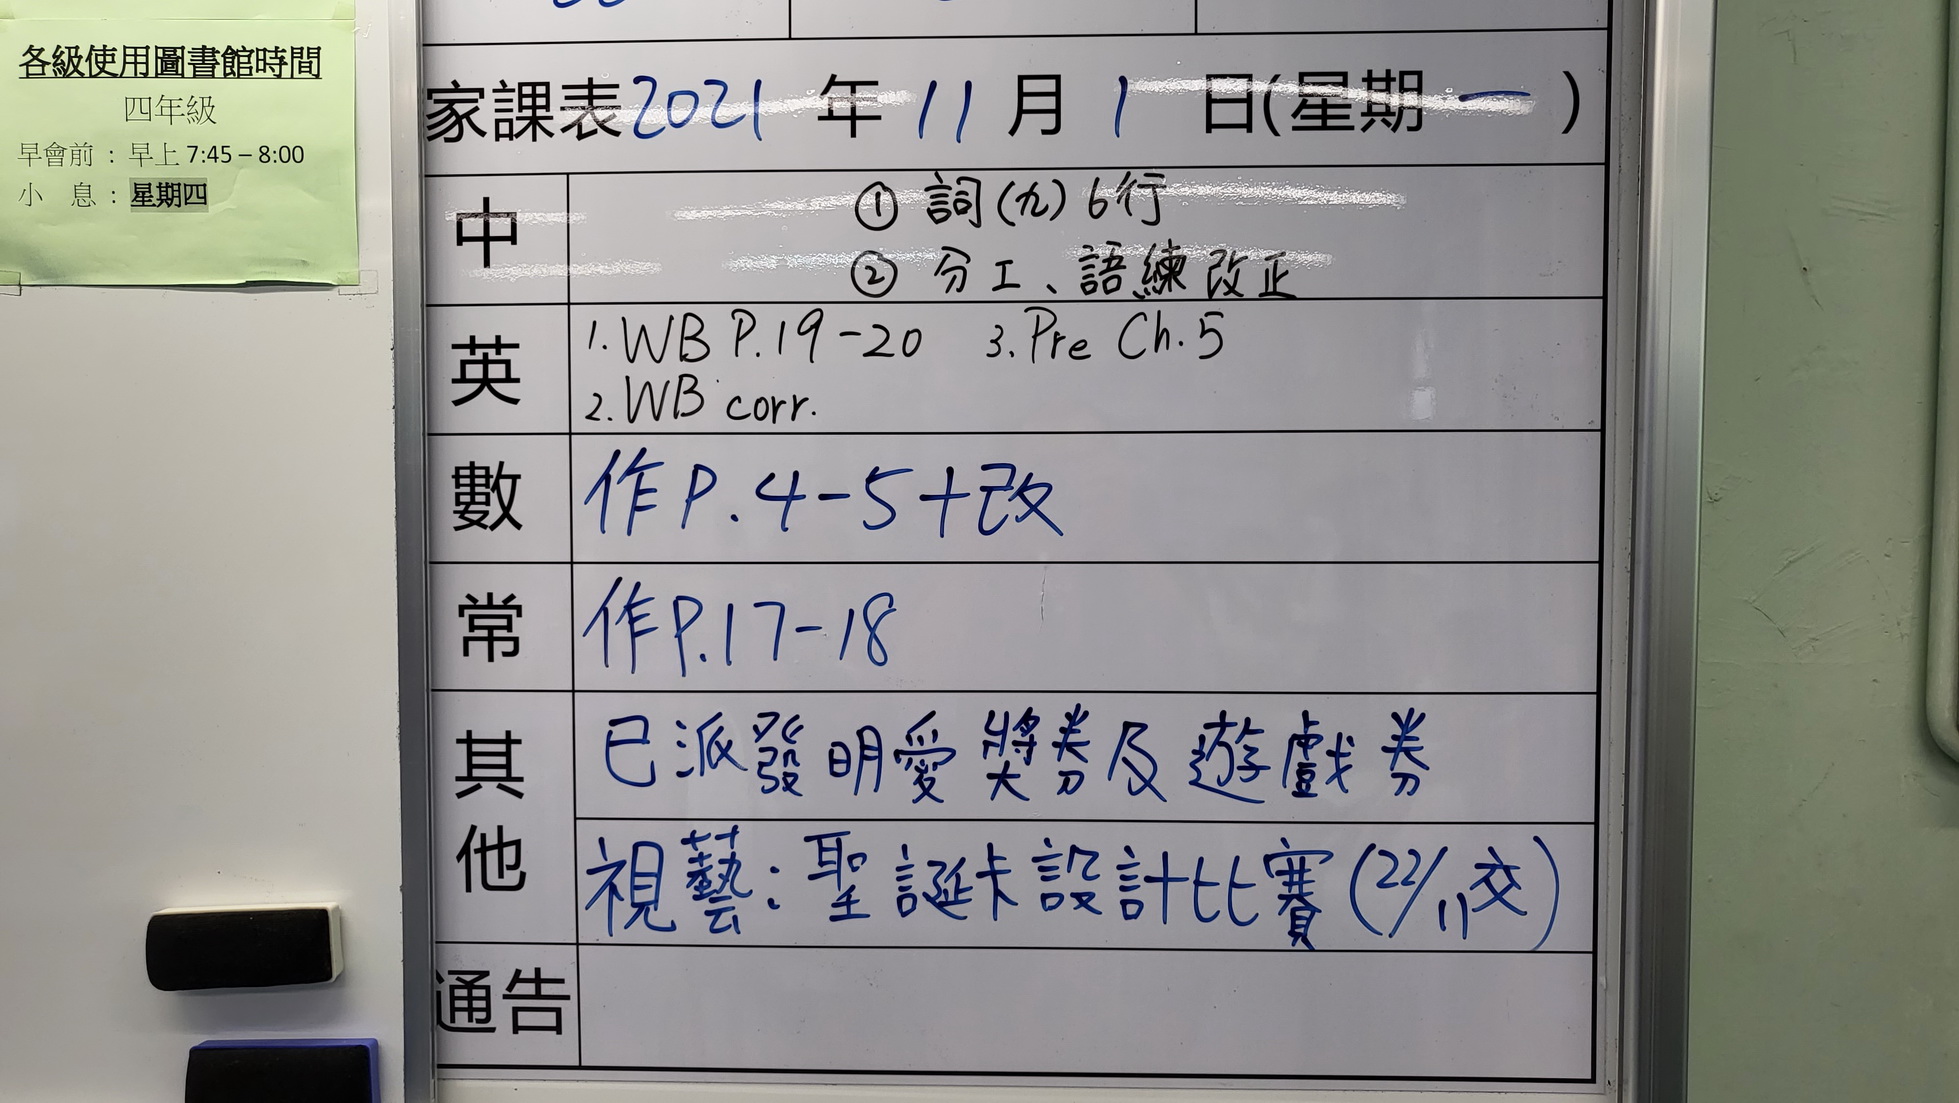 各級使用圖書館時間
四年級
早會前：早上 7:45 – 8:00
小 息：星期四
家課表2021年11月1日(星期一)
中
① 詞(九) 6行
② 分工、語練改正
英
1. WB P.19-20 3. Pre Ch.5
2. WB corr.
數
作P.4-5+改
常
作P.17-18
其他
已派發明愛獎券及遊戲券
視藝：聖誕卡設計比賽(22/11交)
通告